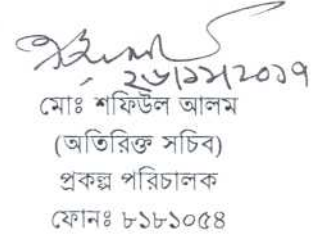 ২৬/১২/২০১৭
মোঃ শফিউল আলম
(অতিরিক্ত সচিব)
প্রকল্প পরিচালক
ফোনঃ ৮১৮১০৫৪